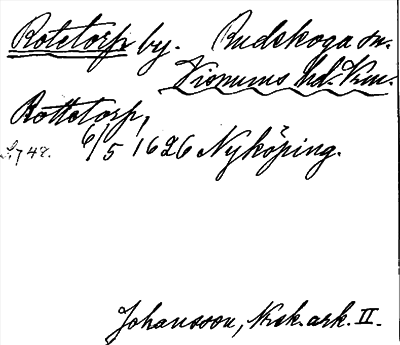 Rotetorp by. Rudskoga sn.
Visnums hd. Krm.
Rottetorp,
6/5 1626 Nyköping.
Johansson, Krk.ark. II.